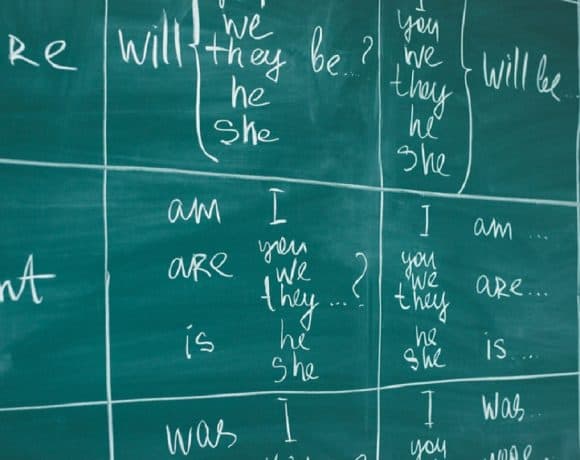 RE
will { we they he she be...?
I you we they he she } will be...
nt
am I
are you we they ...?
is he she
I am ...
you we they are...
he she is....
was I
I was..
you